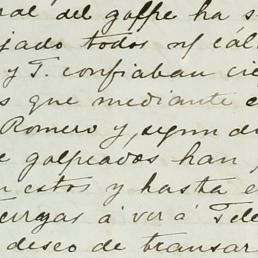 ral del golfe ha s
jado todos
y T. confiaban cie
s que mediante c
Romero y, segun di
e golpeados han
n estos y hasta e
Turgas á ver á Tele
deseo de transar